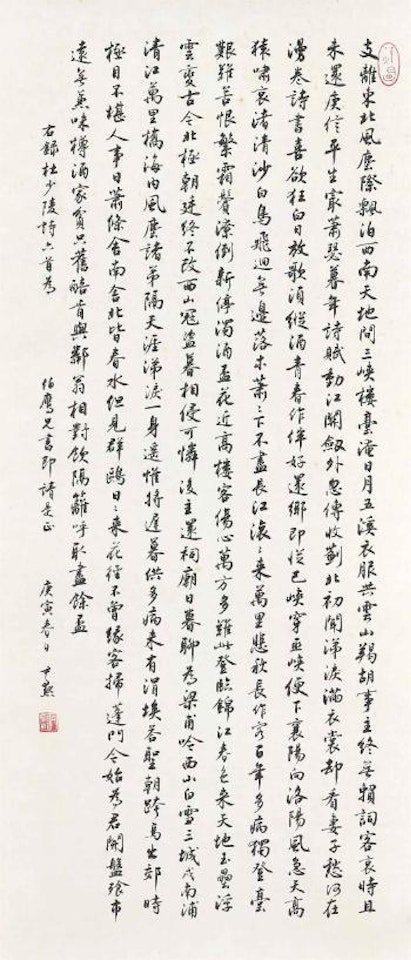 支離東北風塵際飄泊西南天地間三峽樓臺淹日月五溪衣服共雲山羯胡事主終無賴詞客哀時且
未還庾信平生最蕭瑟暮年詩賦動江關劒外忽傳收薊北初聞涕淚滿衣裳却看妻子愁何在
漫卷詩書喜欲狂白日放歌須縱酒青春作伴好還鄉即從巴峽穿巫峽便下襄陽向洛陽風急天高
猿嘯哀渚清沙白鳥飛迴無邊落木蕭〻下不盡長江滾〻來萬里悲秋長作客百年多病獨登臺
艱難苦恨繁霜鬢潦倒新停濁酒盃花近高樓客傷心萬方多難此登臨錦江春色來天地玉壘浮
雲變古今北極朝廷終不改西山寇盜莫相侵可憐後主還祠廟日暮聊為梁甫吟西山白雪三城戍南浦
清江萬里橋海內風塵諸弟隔天涯涕淚一身遙惟將遲暮供多病未有涓埃答聖朝跨馬出郊時
極目不堪人事日蕭條舍南舍北皆春水但見群鷗日〻來花徑不曾緣客掃蓬門今始為君開盤飧市
遠無兼味樽酒家貧只舊醅肯與鄰翁相對飲隔籬呼取盡餘盃
右錄杜少陵詩六首為 伯鷹兄書即請是正 庚寅春日 尹默